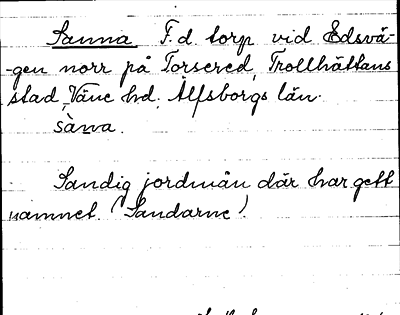 Sanna F.d. torp vid Edsvä-
-gen norr på Torsered, Trollhättans
stad, Väne hd. Älfsborgs län.
sàna.
Sandig jordmån där har gett
namnet. (Sandarne).